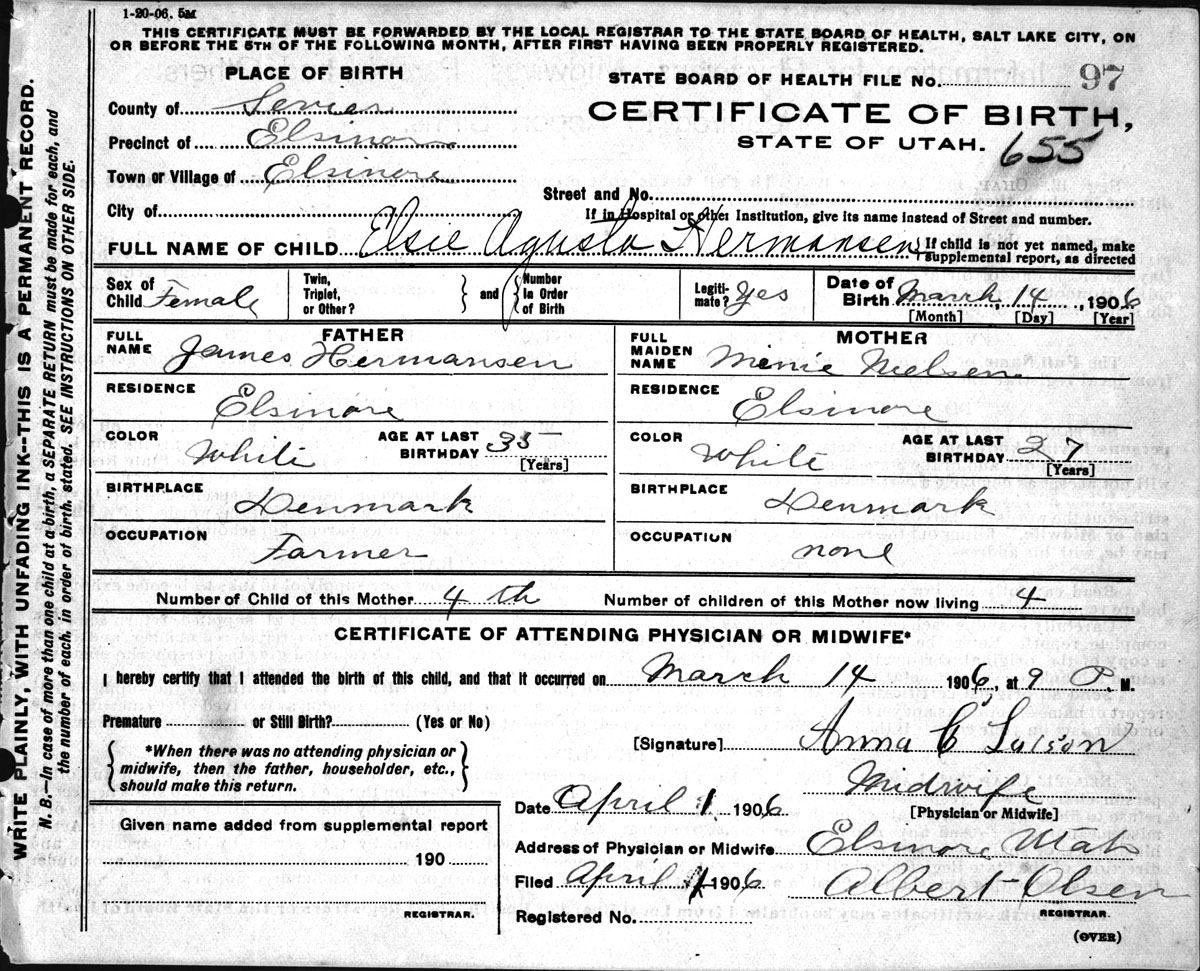 1-20-06. 5M
THIS CERTIFICATE MUST BE FORWARDED BY THE LOCAL REGISTRAR TO THE STATE BOARD OF HEALTH, SALT LAKE CITY, ON
OR BEFORE THE 5TH OF THE FOLLOWING MONTH, AFTER FIRST HAVING BEEN PROPERLY REGISTERED.
WRITE PLAINLY, WITH UNFADING INK--THIS IS A PERMANENT RECORD.
N. B.—In case of more than one child at a birth, a SEPARATE RETURN must be made for each, and
the number of each, in order of birth, stated. SEE INSTRUCTIONS ON OTHER SIDE.
PLACE OF BIRTH
County of Sevier
Precinct of Elsinore
Town or Village of Elsinore
City of
STATE BOARD OF HEALTH FILE No. 97
CERTIFICATE OF BIRTH,
STATE OF UTAH. 655
Street and No.
If in Hospital or other Institution, give its name instead of Street and number.
FULL NAME OF CHILD Elsie Agusta Hermansen { If child is not yet named, make
supplemental report, as directed
Sex of Child Female
Twin, Triplet, or Other? } and { Number in Order of Birth
Legiti-mate? yes
Date of Birth March 14, 1906
[Month] [Day] [Year]
FATHER
FULL NAME James Hermansen
RESIDENCE Elsinore
COLOR White AGE AT LAST BIRTHDAY 35 [Years]
BIRTHPLACE Denmark
OCCUPATION Farmer
MOTHER
FULL MAIDEN NAME Minie Nielsen
RESIDENCE Elsinore
COLOR White AGE AT LAST BIRTHDAY 27 [Years]
BIRTHPLACE Denmark
OCCUPATION none
Number of Child of this Mother 4 th Number of children of this Mother now living 4
CERTIFICATE OF ATTENDING PHYSICIAN OR MIDWIFE*
I hereby certify that I attended the birth of this child, and that it occurred on March 14 1906, at 9 P. M.
Premature or Still Birth? (Yes or No)
{ *When there was no attending physician or
midwife, then the father, householder, etc.,
should make this return. }
[Signature] Anna C
Midwife
[Physician or Midwife]
Date April 1 1906
Address of Physician or Midwife Elsinore Utah
Filed April 1 1906 Albert Olsen
REGISTRAR.
Registered No.
(OVER)
Given name added from supplemental report
190
REGISTRAR.